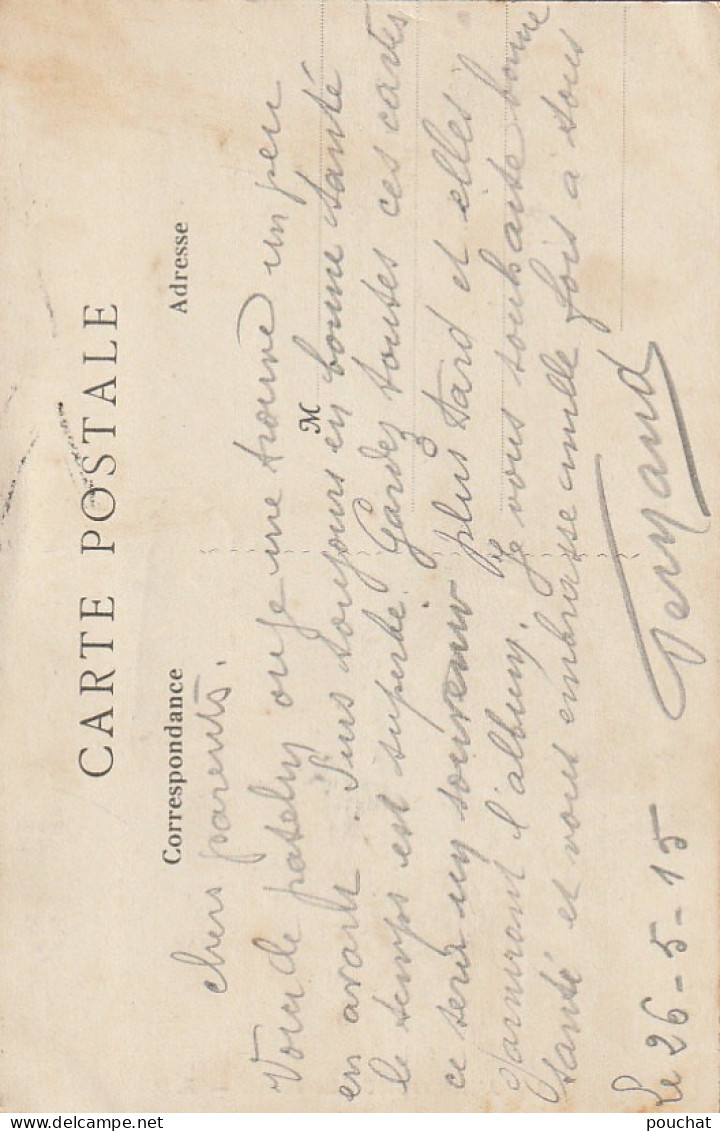 CARTE POSTALE
Correspondance
Adresse
M
chers parents.
Voici le patelin ou je me trouve un peu
en avant. Suis toujours en bonne santé
le temps est superbe. Gardez toutes ces cartes
ce sera un souvenir plus tard et elles
garniront l'album. Je vous souhaite bonne
santé et vous embrasse mille fois à tous
Fernand
Le 26-5-15
pouchat
delcampe.net